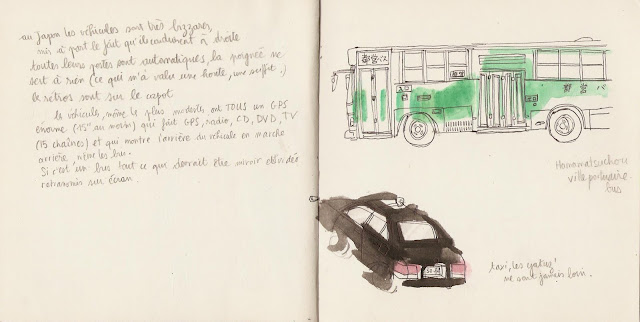 au Japon les véhicules sont très bizzares
mis à part le fait qu'ils conduisent à droite
toutes leurs portes sont automatiques, la poignée ne
sert à rien (ce qui m'a valu une honte, une suffit.)
les rétros sont sur le capot
les véhicules, même le plus modeste, ont TOUS un GPS
énorme (15" au moins) qui fait GPS, radio, CD, DVD, TV
(15 chaînes) et qui montre l'arrière du véhicule en marche
arrière, même les bus.
Si c'est un bus tout ce que devrait être miroir est vidéo
retransmis sur écran.
都営バス
都営
都営バ
Hamamatsuchou
ville portuaire
bus
taxi, les
ne sont jamais loin.